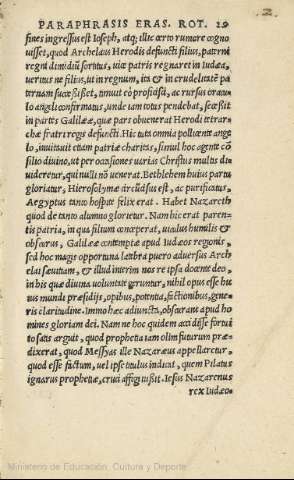 PARAPHRASIS ERAS. ROT. 29
fines ingressus est Ioseph, atq; illic certo rumore cogno
uisset, quod Archelaus Herodis defuncti filius, paterni
regni dimidium sortitus, uice patris regnaret in Iudæa,
ueritus ne filius, ut in regnum, ita & in crudelitatē pa
ternam successisset, timuit eò profisci, ac rursus oracu
lo angeli confirmatus, unde iam totus pendebat, secessit
in partes Galilææ, quæ pars obuenerat Herodi tetrar
chæ fratri regis defuncti. Hic tuta omnia pollicente ange
lo, inuitauit etiam patriæ charitas, simul hoc agente cō
silio diuino, ut per occasiones uarias Christus multis di
uideretur, qui nulli nō uenerat. Bethlehem huius partu
gloriatur, Hierosolymæ circūcisus est, ac purificatus,
Aegyptus tanto hospite felix erat. Habet Nazareth
quod de tanto alumno glorietur. Nam hic erat paren-
tis patria, in qua filium conceperat, uiculus humilis &
obscurus, Galilææ contemptæ apud Iudæos regionis,
sed hoc magis opportuna latebra puero aduersus Arche
lai sæuitiam, & illud interim nos re ipsa docente deo,
in his quæ diuina uoluntate geruntur, nihil opus esse hu
ius mundi præsidijs, opibus, potentia, factionibus, gene
ris claritudine. Immo hæc adiuncta, obscurant apud ho
mines gloriam dei. Nam ne hoc quidem accidisse fortui
to satis arguit, quod propheta iam olim futurum præ-
dixerat, quod Messyas ille Nazaræus appellaretur,
quod esse factum, uel ipse titulus indicat, quem Pilatus
ignarus prophetiæ, cruci affigi iussit. Iesus Nazarenus
rex Iudæo-
Ministerio de Educación, Cultura y Deporte